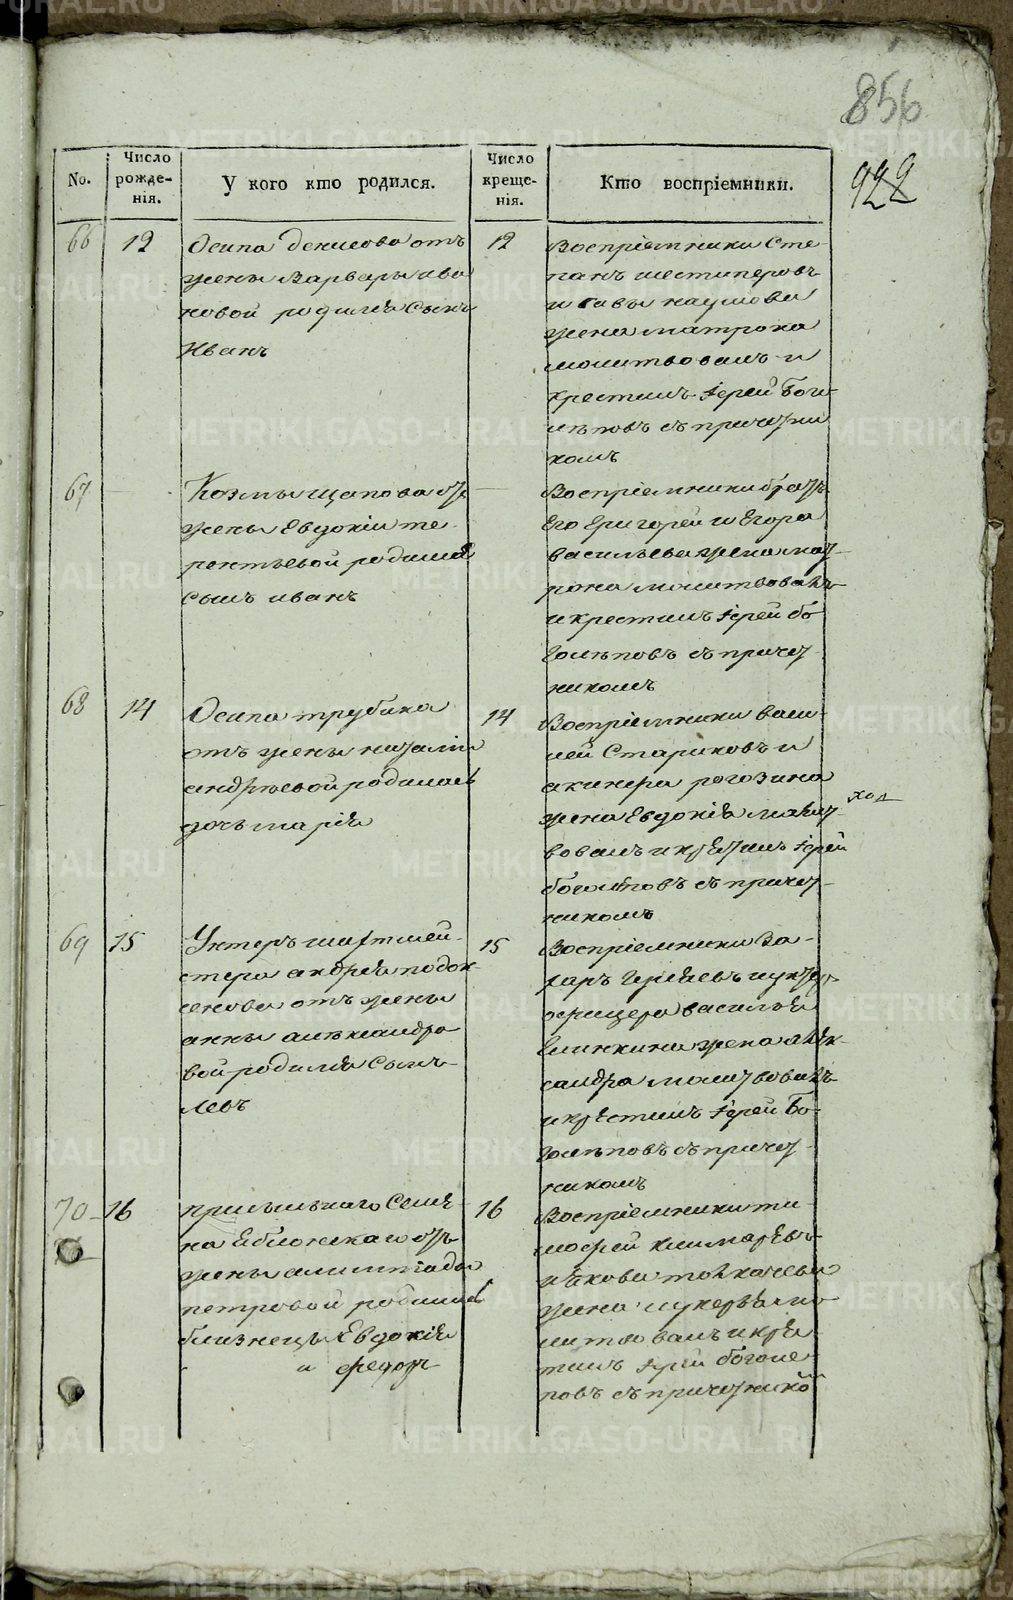 856
922
No.
Число рожде-нія.
У кого кто родился.
Число креще-нія.
Кто воспріемники.
66
12
Осипа денисова отъ
жены Варвары ива
новой родился сынъ
Иванъ
12
Воспріемники Сте
панъ шестиперовъ
и савы наумова
жена матрона
молитвовалъ и
крестилъ Іерей Бого
лѣповъ съ причетни
комъ
67
Козмы щапова от
жены Евдокіи те
рентьевой родился
сынъ иванъ
Воспріемники братъ
Его Григорей и Егора
васильева жена мат
рона молитвовалъ
и крестилъ Іерей бо
голѣповъ съ причет
никомъ
68
14
Осипа трубина
отъ жены наталіи
андреевой родилась
дочь марія
14
Воспріемники васи
лей Стариковъ и
жена Евдокія молит
вовалъ и крестилъ Іерей
боголѣповъ съ причет
никомъ
69
15
Унтеръ шихтмей
стера андрея подок
сенова отъ жены
анны александро
вой родился сынъ
левъ
15
Воспріемники За
харъ
офицера василья
жена алек
сандра молитвовалъ
и крестилъ Іерей Бо
голѣповъ съ причет
никомъ
70
16
жены
петровой родились
близнецы Евдокія
и федотъ
16
Воспріемники ти
мофей
и якова толкачева
жена лукерья мо
литвовалъ и крес
тилъ Іерей боголе
повъ съ причетнико